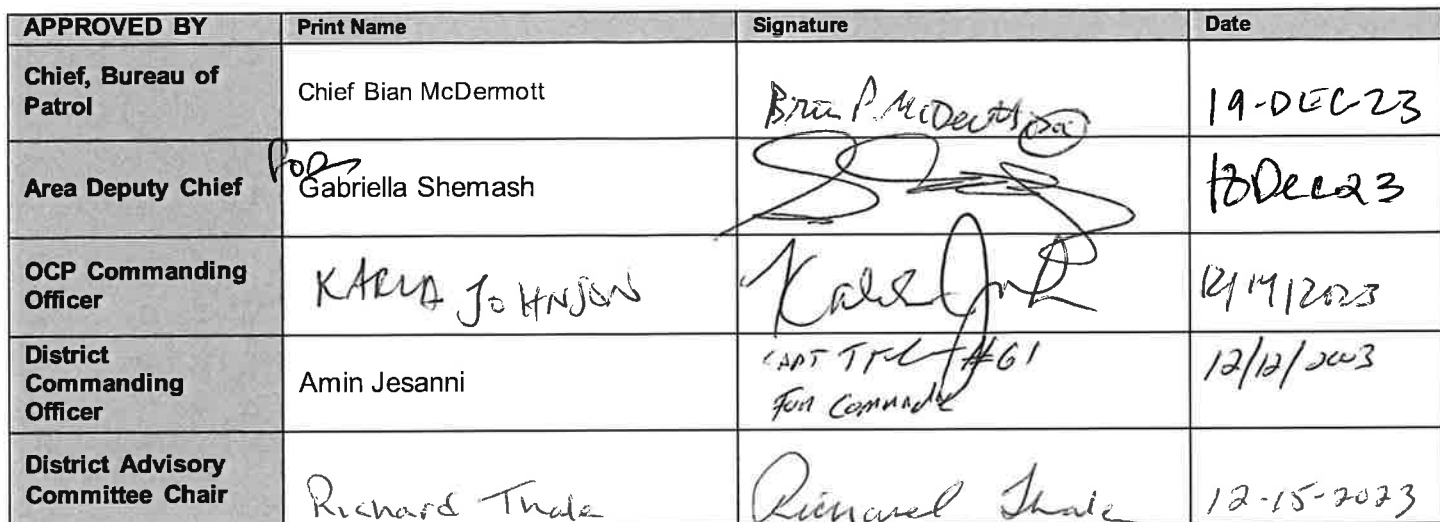 APPROVED BY Print Name Signature Date
Chief, Bureau of
Patrol
Chief Bian McDermott
Brian P. McDermott
19-DEC-23
Area Deputy Chief
for
Gabriella Shemash
18Dec23
OCP Commanding
Officer
KARLA JOHNSON
12/14/2023
District
Commanding
Officer
Amin Jesanni
CAPT #61
For Commander
12/12/2023
District Advisory
Committee Chair
Richard Thale
Richard Thale
12-15-2023